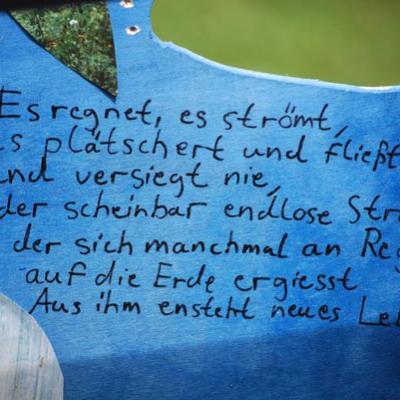 Es regnet, es strömt,
s plätschert und fließt
nd versiegt nie,
der scheinbar endlose Str
der sich manchmal an Reg
auf die Erde ergiesst
Aus ihm ensteht neues Le